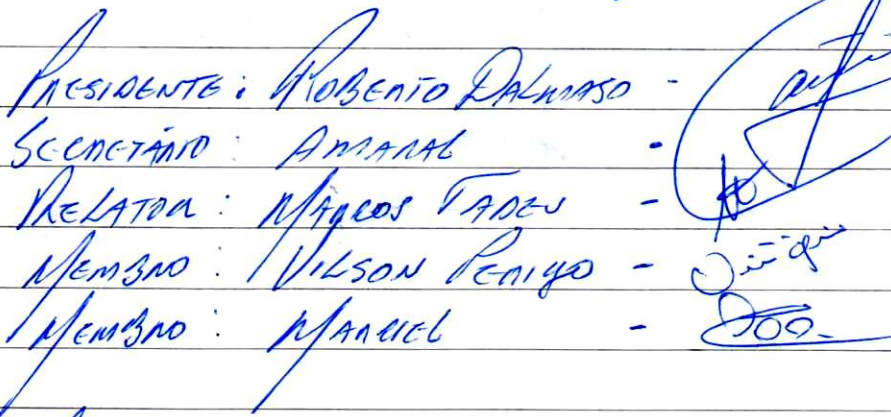 PRESIDENTE: ROBERTO DALMASO -
SECRETÁRIO: AMARAL -
RELATOR: MARCOS TADEU -
MEMBRO: VILSON PERIGO -
MEMBRO: MARCIEL -